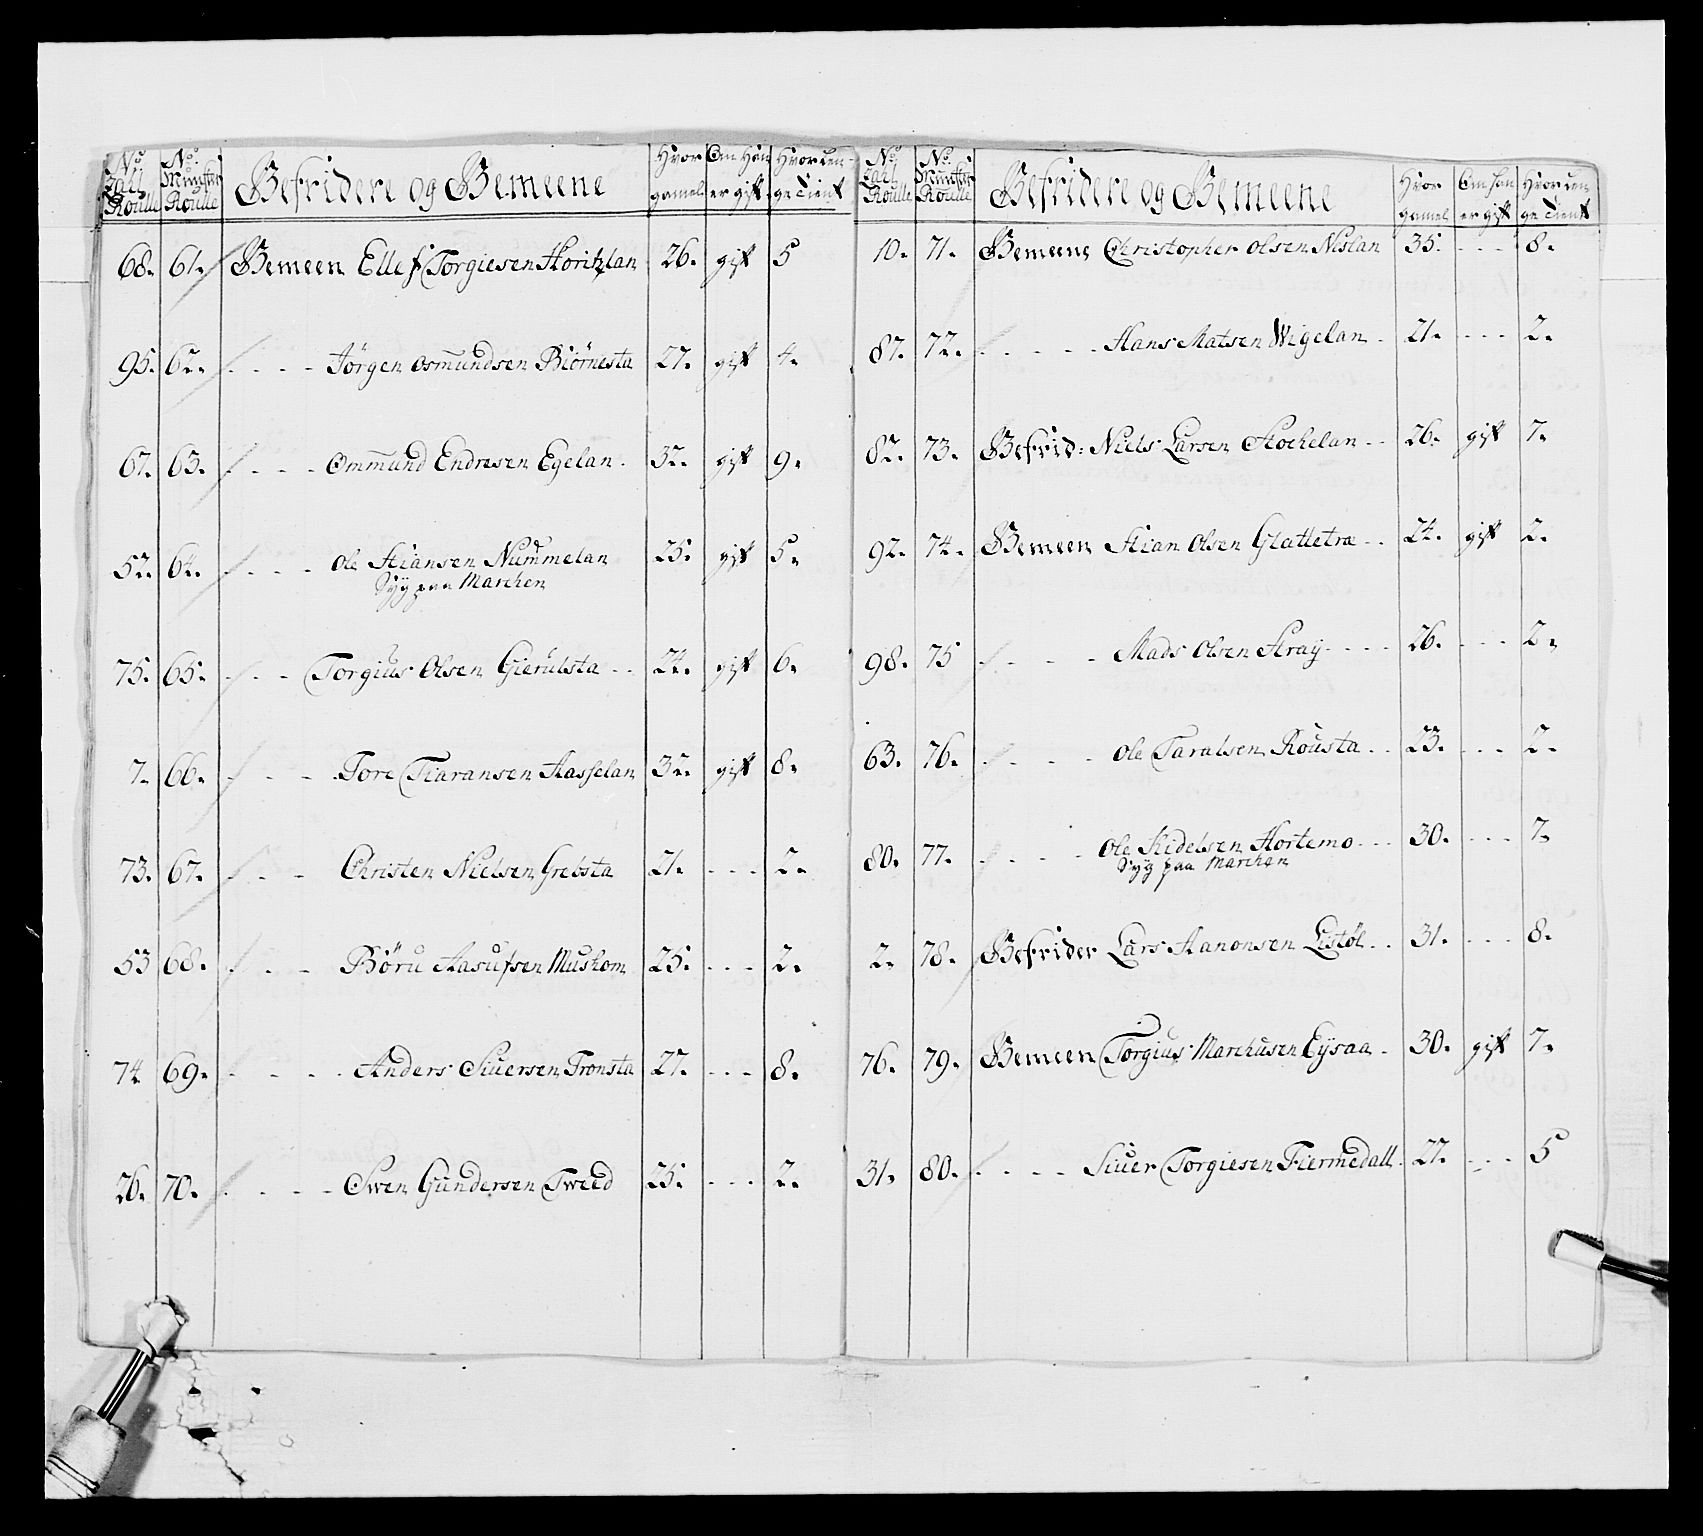 No Zall Roulle | No. Munster Roulle | Befridere og Bemeene | Hvor gamel | Om Han er gift | Hvor Lenge Tient
68. 61. Bemeen Ellef Torgiesen Horitzlan 26. gift 5
95. 62. - - - - Jörgen Osmundsen Biörnesta 27. gift 4.
67. 63. - - - - Ommund Endresen Egelan. 32. gift 9.
52. 64. - - - - Ole Stiansen Nummelan 25. gift 5.
Syg paa Marchen
75. 65. - - - Torgius Olsen Gierulsta - - 24. gift 6.
7. 66. - - - - Tore Tiaransen Aasselan 32. gift 8.
73. 67. - - - Christen Nielsen Grebsta 21. - - - 2.
53 68. - - - Böru Aasulfsen Muskom 25. - - - 2.
74 69. - - - - Anders Siuersen Tronsta 27. - - - 8.
26. 70. - - - - Swen Gundersen Tweed 25. - - - 2.
No. Zall Roulle | No. Munster Roulle | Befridere og Bemeene | Hvor gamel | Om han er gift | Hvor Lenge Tient
10. 71. Bemeene Christopher Olsen Nislan 35. - - - 8.
87. 72. - - - - - Hans Matsen Wigelan. 21. - - - 2.
82. 73. Befrid: Niels Larsen Stochelan - - 26. gift 7.
92. 74. Bemeen Stian Olsen Glattetræ - - 24. gift 2.
98. 75 - - - - Mads Olsen Aray - - - - 26. - - - 2.
63. 76. - - - - Ole Taralsen Rousta - - 23. - - - 2.
80. 77. - - - - Ole Kidelsen Hortemo - - - 30. - - - 7.
Syg paa Marchen
2. 78. Befrider Lars Aanonsen Listöl - - 31. - - - 8.
76. 79. Bemeen Torgius Marchusen Eysaa - 30. gift 7.
31. 80. - - - - Siuer Torgiesen Fiermedall. 27. - - - 5